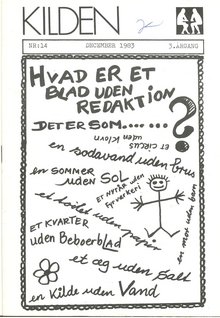 KILDEN
NR:14 DECEMBER 1983 3.ÅRGANG
HVAD ER ET
BLAD UDEN
REDAKTION
?
DET ER SOM......
et CIRCUS
uden Klovn
en sodavand uden brus
en SOMMER
uden SOL
ET NYTÅR uden
Fyrværkeri
et toilet uden papir
en mor uden barn
ET KVARTER
uden Beboerblad
et æg uden salt
en Kilde uden Vand